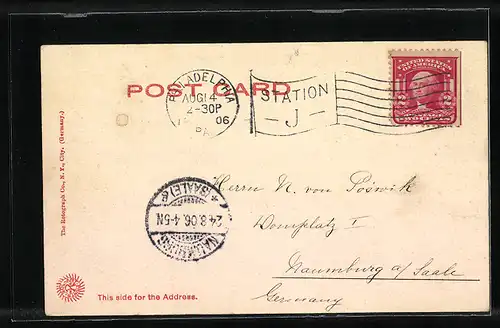 POST CARD
PHILADELPHIA
AUG 14
2-30P
06
PA
STATION
J
UNITED STATES
OF AMERICA
The Rotograph Co., N. Y. City. (Germany.)
NAUMBURG
24.8.06.4-5N
(SAALE)
Herrn N. von Poswik
Domplatz I
Naumburg a/ Saale
Germany
This side for the Address.